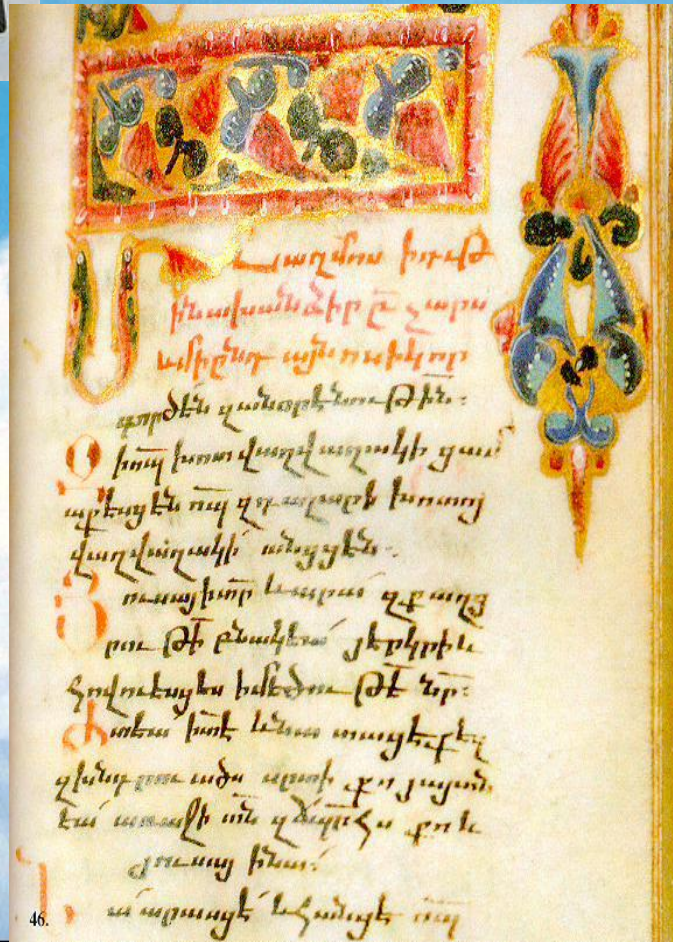 Սաղմոս ի Դաւթ
ի նախանձիր ընդ չարս
և մի ընդ այնոսիկ որ
գործեն զանօրէնութի՛ն։
Զի ո՟պ խոտ վաղվաղակի ցամ
աքեսցեն ո՟պ զդալարի խոտոյ
վաղվաղակի անցցեն։
Յուսա ի տ՟ր և արա՛ զքաղց
րութի՟ բնակեա՛ յերկրի և
հովուեսցես ի մեծութե՟ նր՟։
տեա՛ ի տ՟է և նա տացէ քեզ
զխնդրուածս սրտի քո յայտն
եա՛ առաջի տ՟ն զճ՟պ՟րհս քո և
յուսա ի նա։
ա՛ արասցէ և հանցէ ո՟պ
46.